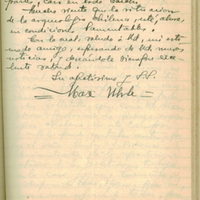 pasar, caro en todo sentido.
Mucho siento que la situacion
de la arqueologia chilena esté, ahora,
en condiciones lamentables.
Con lo cual saludo á Ud., mi esti-
mado amigo, esperando de Ud. nuevas
noticias, y deseándole siempre exce-
lente salud.
Su afectísimo y S.S.
Max Uhle